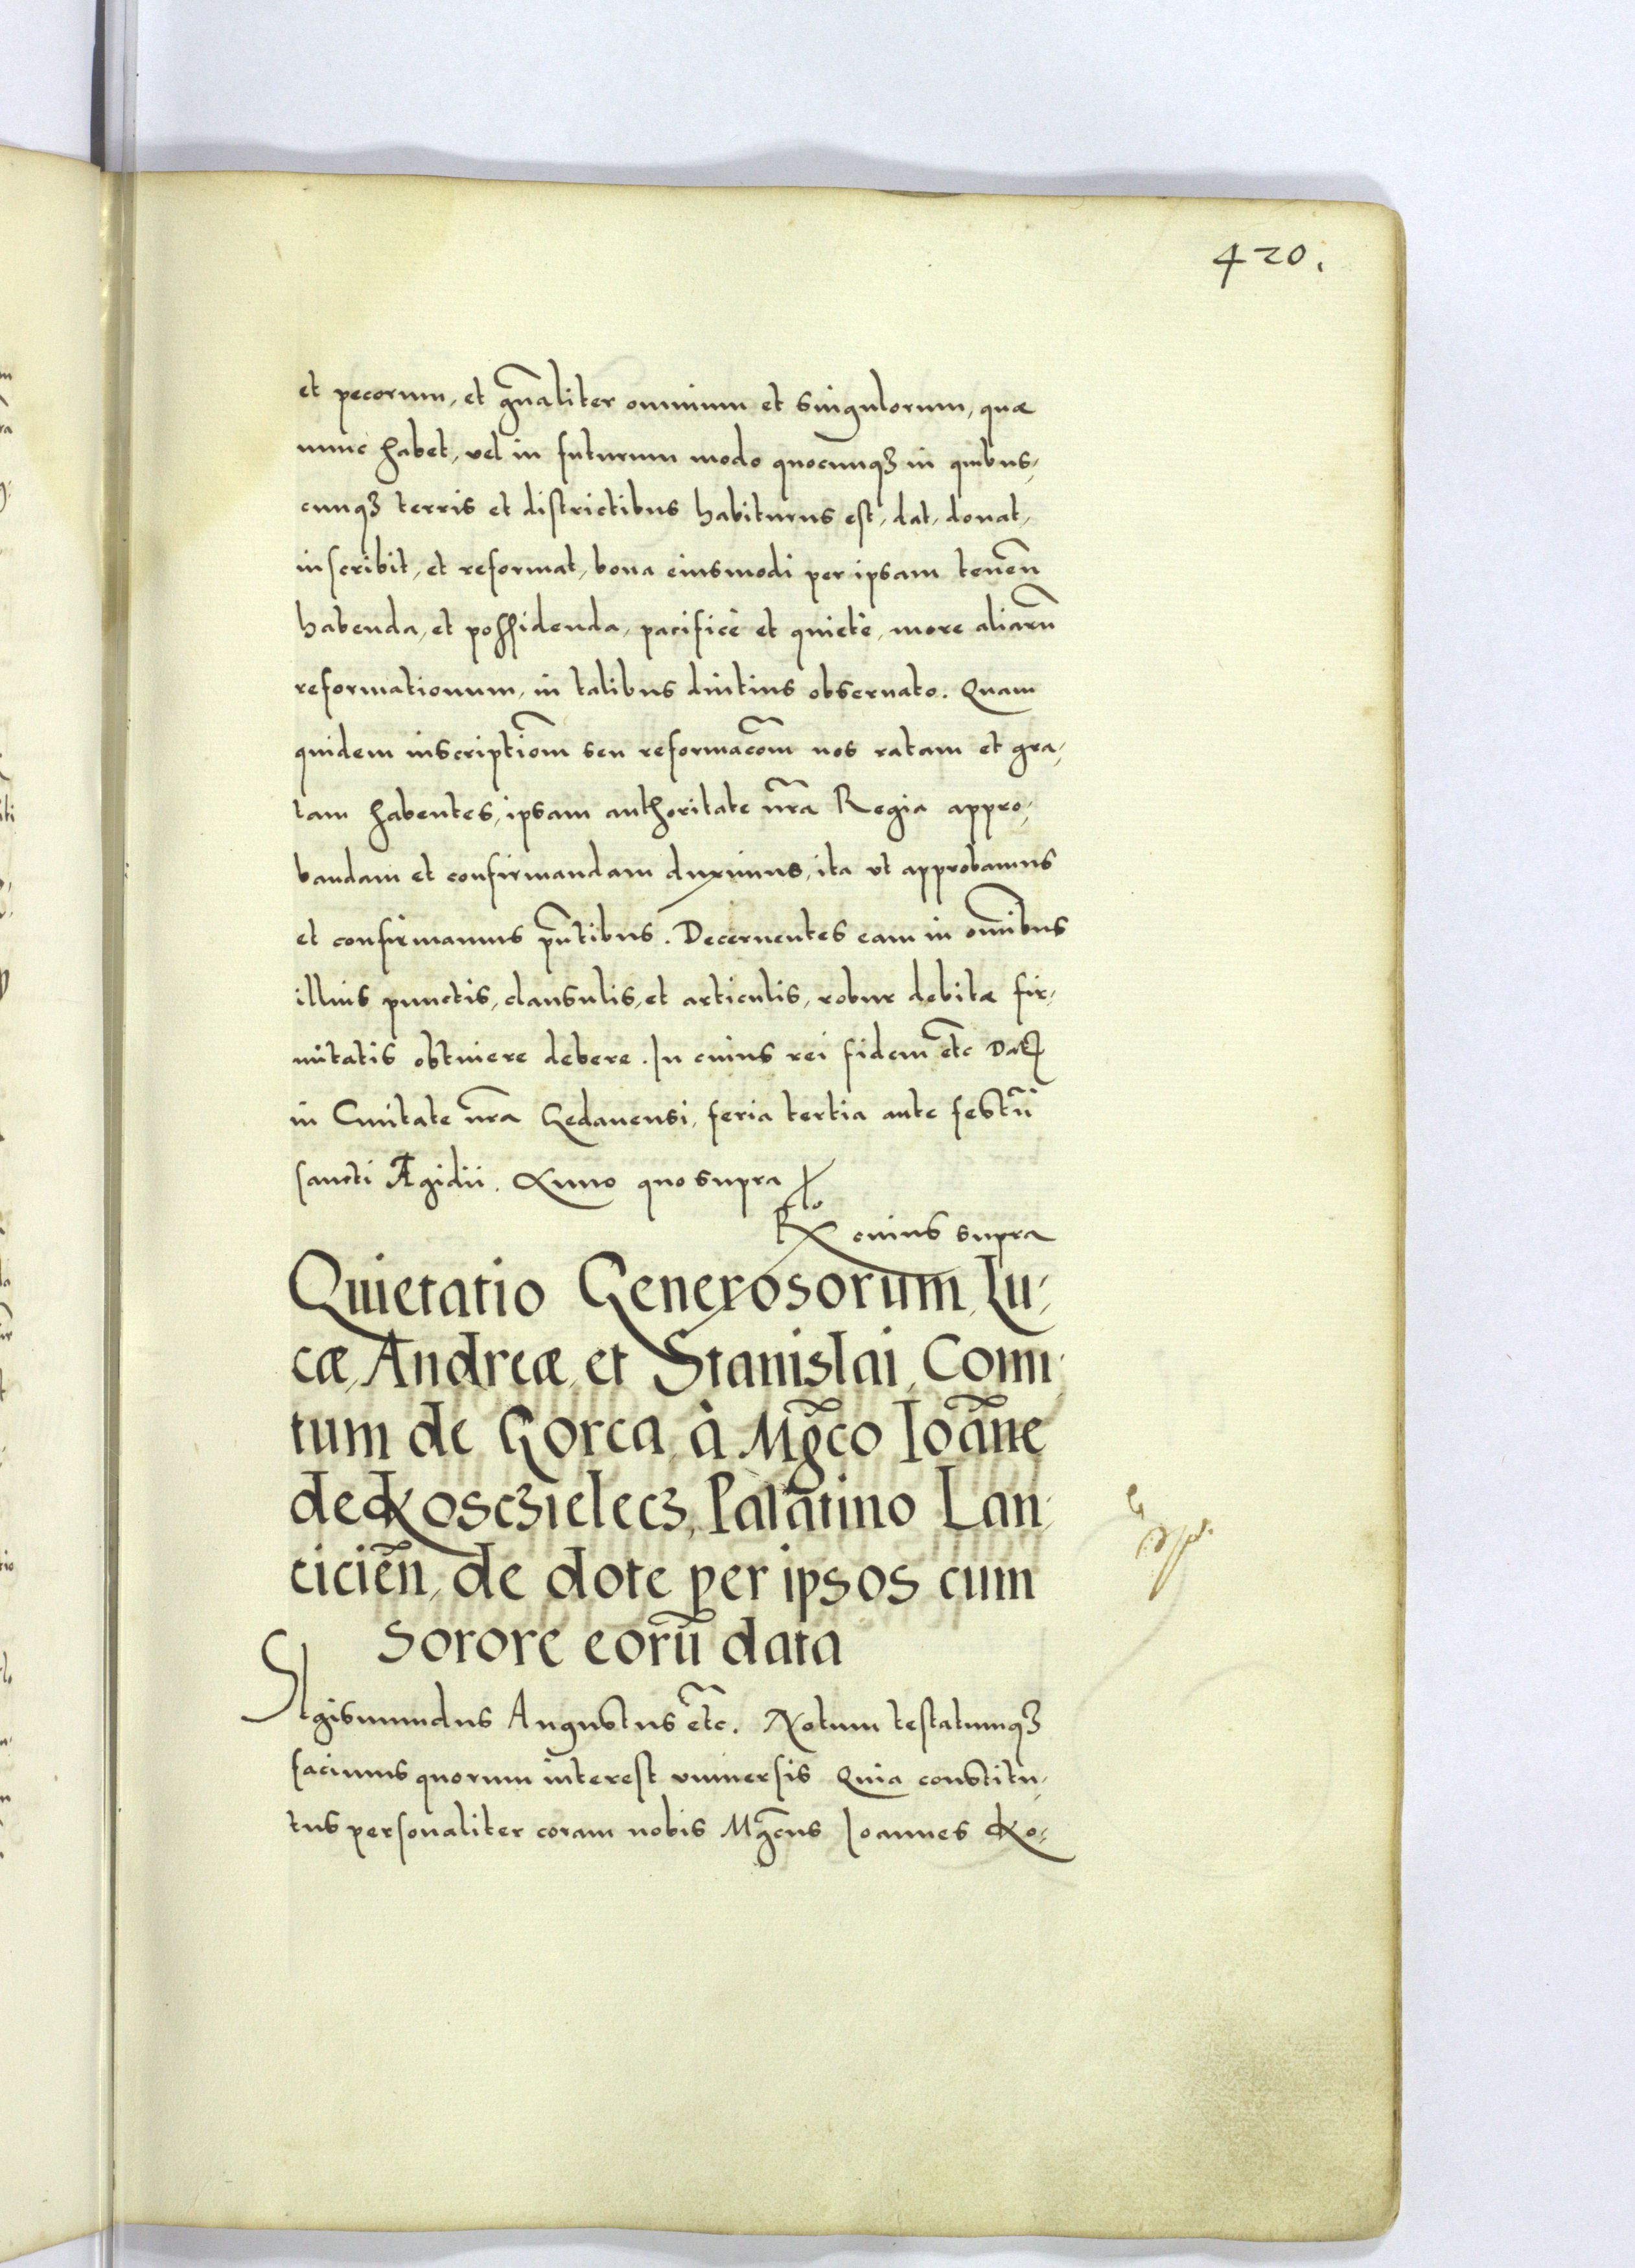 420.
et pecorum, et gn̄aliter omnium et singulorum, quæ
nunc habet, vel in futurum modo quocunqꝫ in quibus,
cunqꝫ terris et districtibus habiturus est, dat, donat,
inscribit, et reformat, bona eiusmodi per ipsam tenēn
habenda, et possidenda, pacificè et quietè, more aliarū
reformationum, in talibus diutius obseruato. Quam
quidem inscriptiōm seu reformac̄om nos ratam et gra,
tam habentes, ipsam authoritate nr̄a Regia appro,
bandam et confirmandam duximus, ita vt approbamus
et confirmamus pn̄tibus. Decernentes eam in om̄ibus
illius punctis, clausulis, et articulis, robur debitæ fir,
mitatis obtinere debere. In cuius rei fidem etc̄ Datꝭ
in Ciuitate nr̄a Gedanensi, feria tertia ante festū
sancti Ægidii. Anno quo supra
Rlo cuius supra
Quietatio Generosorum, Lu,
cæ, Andreæ, et Stanislai, Comi,
tum de Gorca, à Mgc̄o Ioān̄e
de Kosczielecz, Palatino Lan,
ciciēn, de dote per ipsos cum
sorore eorū data
SIgismundus Augustus etc̄. Notum testatumqꝫ
facimus quorum interest vniuersis Quia constitu,
tus personaliter coram nobis Mgc̄us Ioannes Ko,